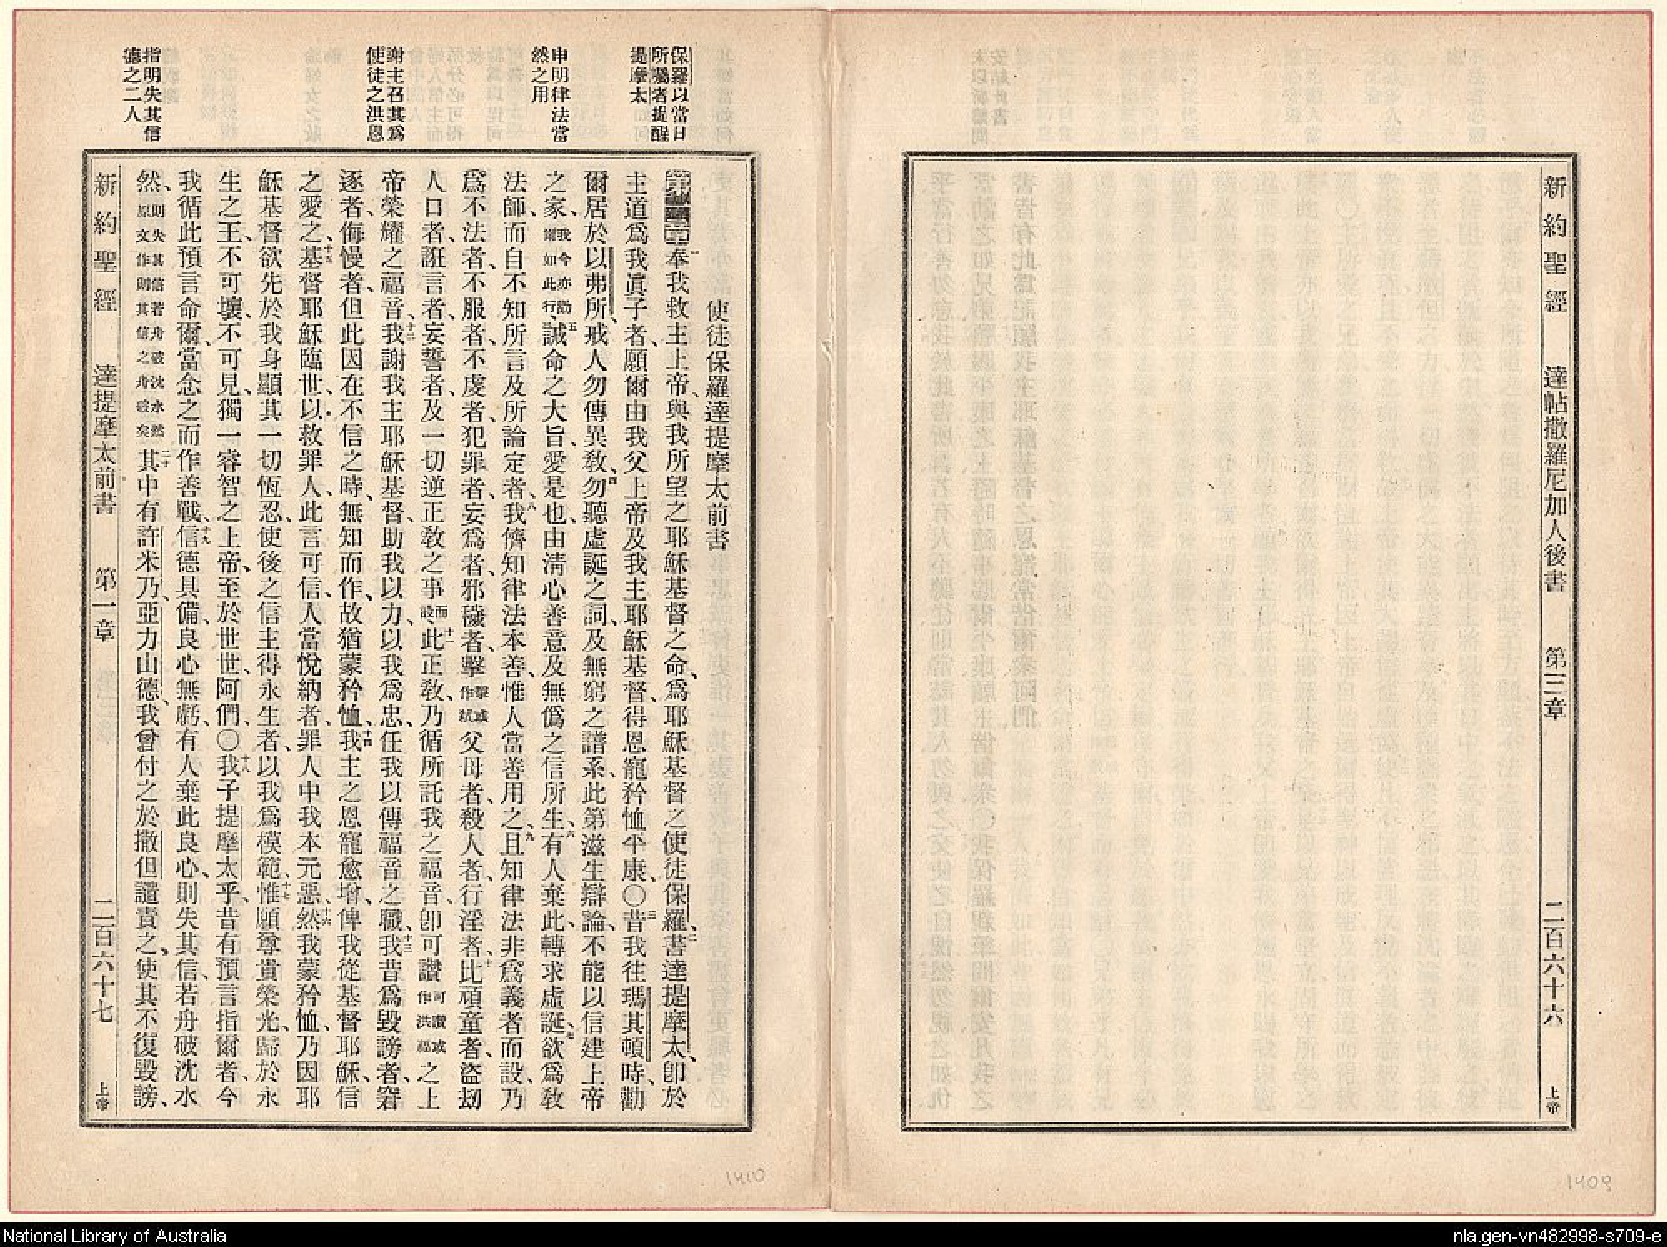 新約聖經 達帖撒羅尼加人後書 第三章 二百六十六 上帝
1409
保羅以當日
所囑者提醒
提摩太
申明律法當
然之用
謝主召其爲
使徒之洪恩
指明失其信
德之二人
使徒保羅達提摩太前書
第一章一奉我救主上帝、與我所望之耶穌基督之命、爲耶穌基督之使徒保羅、二書達提摩太、卽於
主道爲我眞子者、願爾由我父上帝及我主耶穌基督、得恩寵矜恤平康、〇三昔我往瑪其頓時、勸
爾居於以弗所、戒人勿傳異敎、四勿聽虛誕之詞、及無窮之譜系、此第滋生辯論、不能以信建上帝
之家、我今亦勸爾如此行、五誡命之大旨、愛是也、由淸心善意及無僞之信所生、六有人棄此、轉求虛誕、七欲爲敎
法師、而自不知所言及所論定者、八我儕知律法本善、惟人當善用之、九且知律法非爲義者而設、乃
爲不法者、不服者、不虔者、犯罪者、妄爲者、邪穢者、擊擊或作弒父母者、殺人者、十行淫者、比頑童者、盜刧
人口者、誑言者、妄誓者、及一切逆正敎之事而設、十一此正敎、乃循所託我之福音、卽可讚可讚或作洪福之上
帝榮耀之福音、十二我謝我主耶穌基督、助我以力、以我爲忠、任我以傳福音之職、十三我昔爲毀謗者、窘
逐者、侮慢者、但此因在不信之時、無知而作、故猶蒙矜恤、十四我主之恩寵愈增、俾我從基督耶穌信
之愛之、十五基督耶穌臨世、以救罪人、此言可信、人當悅納者、罪人中我本元惡、十六然我蒙矜恤、乃因耶
穌基督欲先於我身顯其一切恆忍、使後之信主得永生者、以我爲模範、十七惟願尊貴榮光、歸於永
生之王、不可壞、不可見、獨一睿智之上帝、至於世世、阿們、〇十八我子提摩太乎、昔有預言指爾者、今
我循此預言命爾、當念之而作善戰、十九信德具備、良心無虧、有人棄此良心、則失其信、若舟破沈水
然、則失其信若舟破沈水然原文作則其信之舟破矣二十其中有許米乃、亞力山德、我曾付之於撒但譴責之、使其不復毀謗、
新約聖經 達提摩太前書 第一章 二百六十七 上帝
1410
National Library of Australia
nla.gen-vn482998-s709-e